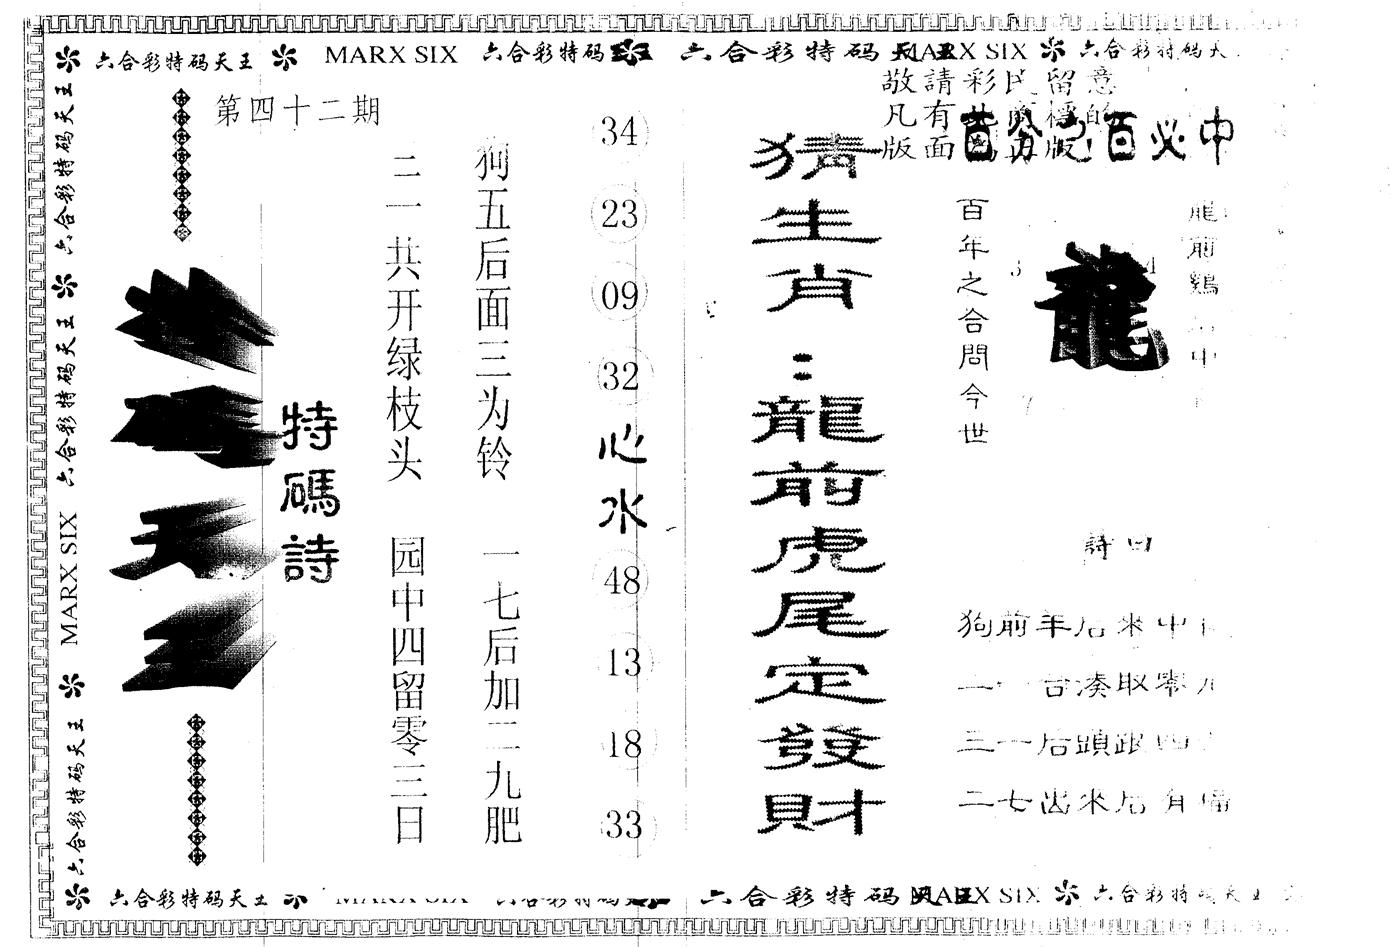 六合彩特码天王 MARX SIX 六合彩特码 六合彩特码天王 MARX SIX 六合彩特码天
敬請彩民留意
凡有此商標的
版面為正版
百分之百必中
第四十二期
六合彩特码天王
六合彩特码天王
六合彩特码天王
MARX SIX
六合彩特码天王
特碼詩
二一共开绿枝头 园中四留零三日
狗五后面三为铃 一七后加二九肥
34
23
09
32
心水
48
13
18
33
猜生肖：龍前虎尾定發財
百年之合問今世
龍
龍前鷄
中
詩曰
狗前羊后来中
二一合湊取零
三一后頭跟四
二七出来后有
六合彩特码天王 MARX SIX 六合彩特码 六合彩特码天王 MARX SIX 六合彩特码天王